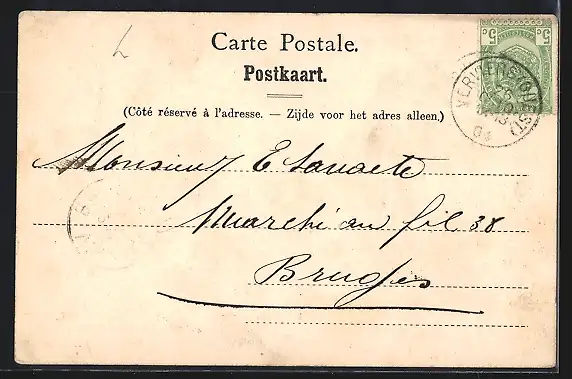 Carte Postale.
Postkaart.
(Côté réservé à l'adresse. — Zijde voor het adres alleen.)
VERVIERS (OUEST)
Monsieur E
Marché au fil 38
Bruges